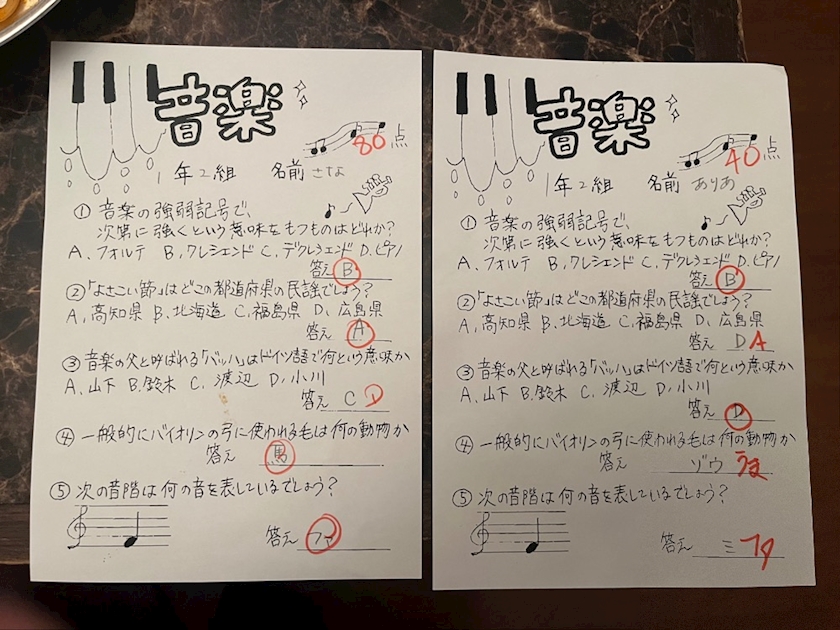 音楽
80点
1年2組 名前 さなよ
① 音楽の強弱記号で、
次第に強くという意味をもつものはどれか?
A、フォルテ B、クレシェンド C、デクレシェンド D、ピアノ
答え B
② 「よさこい節」はどこの都道府県の民謡でしょう?
A、高知県 B、北海道 C、福島県 D、広島県
答え A
③ 音楽の父と呼ばれる「バッハ」はドイツ語で何という意味か
A、山下 B、鈴木 C、渡辺 D、小川
答え C D
④ 一般的にバイオリンの弓に使われる毛は何の動物か
答え 馬
⑤ 次の音階は何の音を表しているでしょう?
答え ファ
音楽
40点
1年2組 名前 ありあ
① 音楽の強弱記号で、
次第に強くという意味をもつものはどれか?
A、フォルテ B、クレシェンド C、デクレシェンド D、ピアノ
答え B
② 「よさこい節」はどこの都道府県の民謡でしょう?
A、高知県 B、北海道 C、福島県 D、広島県
答え D A
③ 音楽の父と呼ばれる「バッハ」はドイツ語で何という意味か
A、山下 B、鈴木 C、渡辺 D、小川
答え D
④ 一般的にバイオリンの弓に使われる毛は何の動物か
答え ゾウ うま
⑤ 次の音階は何の音を表しているでしょう?
答え ミ ファ